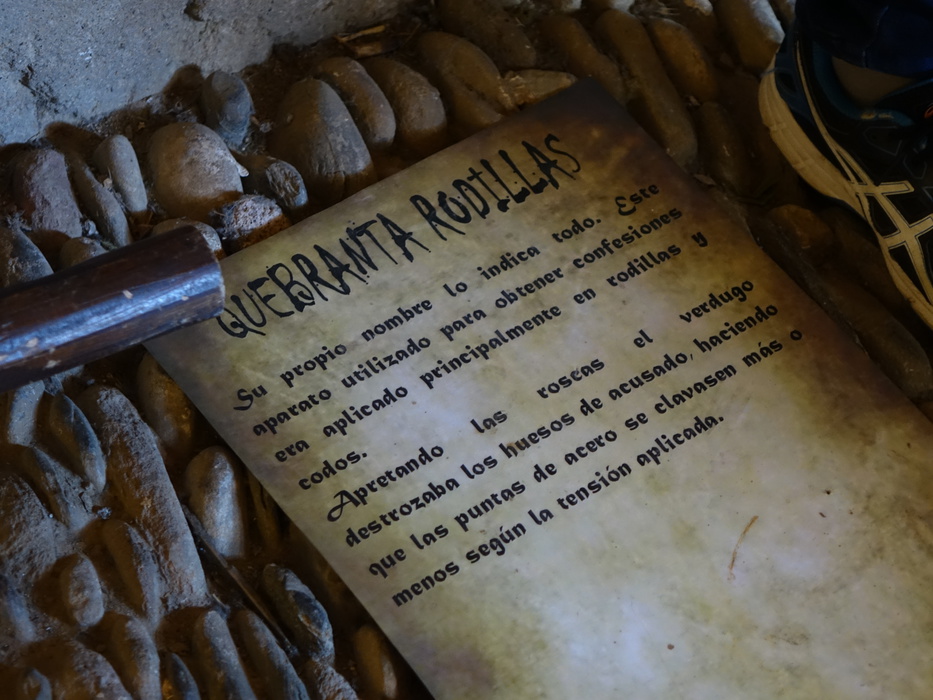 QUEBRANTA RODILLAS
Su propio nombre lo indica todo. Este
aparato utilizado para obtener confesiones
era aplicado principalmente en rodillas y
codos.
Apretando las roscas el verdugo
destrozaba los huesos de acusado, haciendo
que las puntas de acero se clavasen más o
menos según la tensión aplicada.